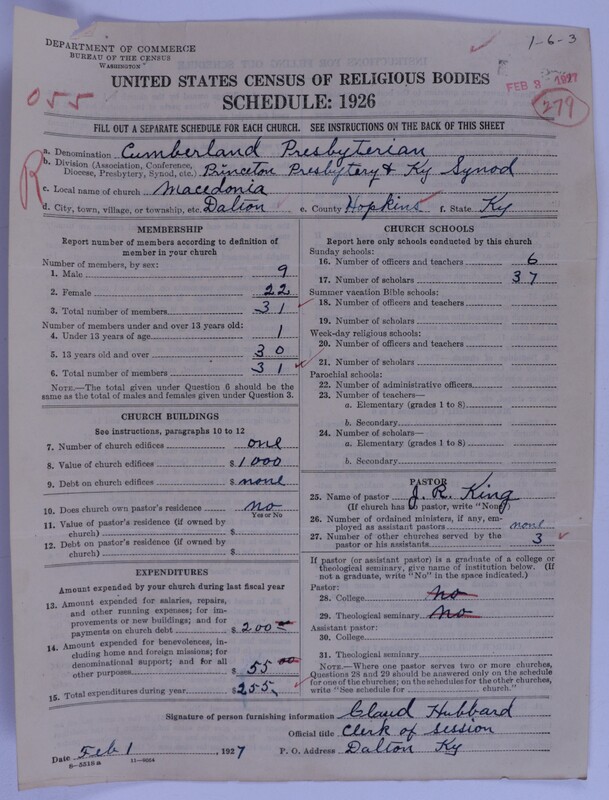 1-6-3
DEPARTMENT OF COMMERCE
BUREAU OF THE CENSUS
WASHINGTON
UNITED STATES CENSUS OF RELIGIOUS BODIES
FEB 3 1927
055
SCHEDULE: 1926
279
FILL OUT A SEPARATE SCHEDULE FOR EACH CHURCH. SEE INSTRUCTIONS ON THE BACK OF THIS SHEET
R
a. Denomination Cumberland Presbyterian
b. Division (Association, Conference, Diocese, Presbytery, Synod, etc.) Princeton Presbytery & Ky Synod
c. Local name of church Macedonia
d. City, town, village, or township, etc. Dalton e. County Hopkins f. State Ky
MEMBERSHIP
Report number of members according to definition of
member in your church
Number of members, by sex:
1. Male 9
2. Female 22
3. Total number of members 31
Number of members under and over 13 years old:
4. Under 13 years of age 1
5. 13 years old and over 30
6. Total number of members 31
NOTE.—The total given under Question 6 should be
the same as the total of males and females given under Question 3.
CHURCH BUILDINGS
See instructions, paragraphs 10 to 12
7. Number of church edifices one
8. Value of church edifices $ 1000
9. Debt on church edifices $ none
10. Does church own pastor's residence no
Yes or No
11. Value of pastor's residence (if owned by
church) $
12. Debt on pastor's residence (if owned by
church) $
EXPENDITURES
Amount expended by your church during last fiscal year
13. Amount expended for salaries, repairs,
and other running expenses; for im-
provements or new buildings; and for
payments on church debt $ 200
14. Amount expended for benevolences, in-
cluding home and foreign missions; for
denominational support; and for all
other purposes $ 55 00
15. Total expenditures during year $ 255
CHURCH SCHOOLS
Report here only schools conducted by this church
Sunday schools:
16. Number of officers and teachers 6
17. Number of scholars 37
Summer vacation Bible schools:
18. Number of officers and teachers
19. Number of scholars
Week-day religious schools:
20. Number of officers and teachers
21. Number of scholars
Parochial schools:
22. Number of administrative officers
23. Number of teachers—
a. Elementary (grades 1 to 8)
b. Secondary
24. Number of scholars—
a. Elementary (grades 1 to 8)
b. Secondary
PASTOR
25. Name of pastor J. R. King
(If church has no pastor, write "None")
26. Number of ordained ministers, if any, em-
ployed as assistant pastors none
27. Number of other churches served by the
pastor or his assistants 3
If pastor (or assistant pastor) is a graduate of a college or
theological seminary, give name of institution below. (If
not a graduate, write "No" in the space indicated.)
Pastor:
28. College No
29. Theological seminary No
Assistant pastor:
30. College
31. Theological seminary
NOTE.—Where one pastor serves two or more churches,
Questions 28 and 29 should be answered only on the schedule
for one of the churches; on the schedules for the other churches,
write "See schedule for church."
Signature of person furnishing information Claud Hubbard
Official title Clerk of Session
Date Feb 1, 1927 P. O. Address Dalton Ky
8-5318 a 11-8684